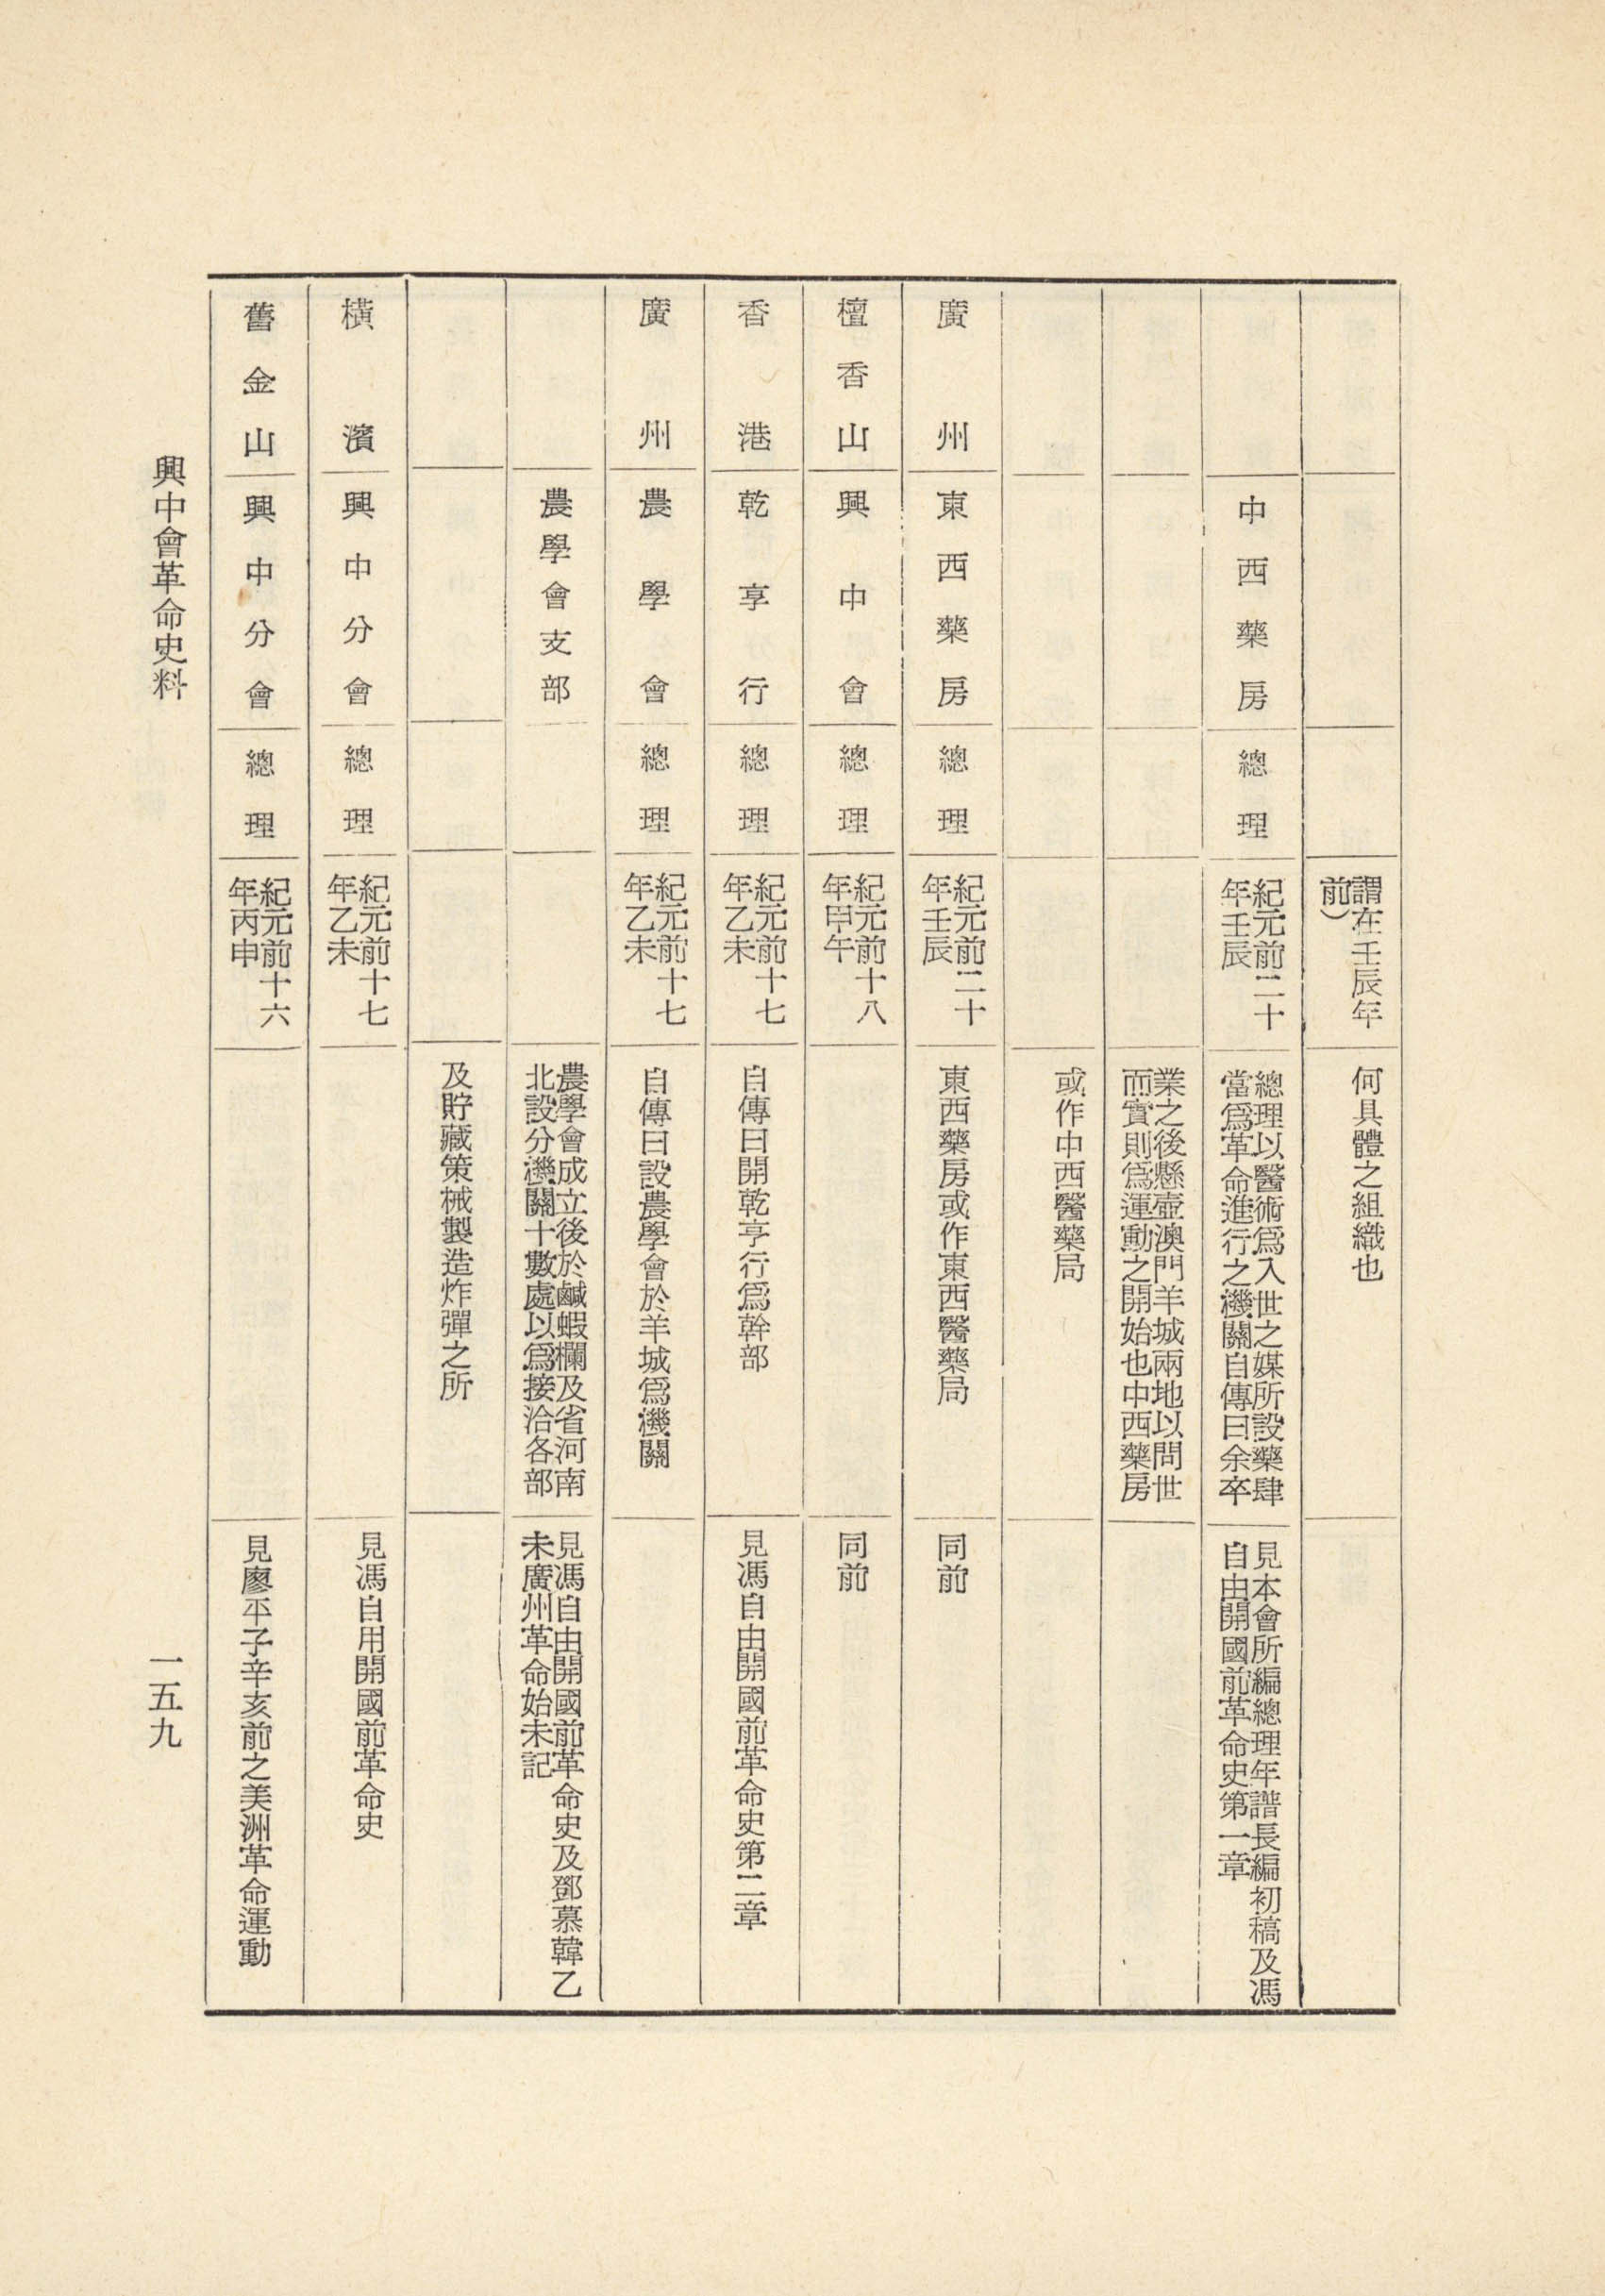 謂在壬辰年
前）
何具體之組織也
中西藥房
總理
紀元前二十
年壬辰
總理以醫術爲入世之媒所設藥肆
當爲革命進行之機關自傳曰余卒
見本會所編總理年譜長編初稿及馮
自由開國前革命史第一章
業之後懸壺澳門羊城兩地以問世
而實則爲運動之開始也中西藥房
或作中西醫藥局
廣州
東西藥房
總理
紀元前二十
年壬辰
東西藥房或作東西醫藥局
同前
檀香山
興中會
總理
紀元前十八
年甲午
同前
香港
乾亨行
總理
紀元前十七
年乙未
自傳曰開乾亨行爲幹部
見馮自由開國前革命史第二章
廣州
農學會
總理
紀元前十七
年乙未
自傳曰設農學會於羊城爲機關
農學會支部
農學會成立後於鹹蝦欄及省河南
北設分機關十數處以爲接洽各部
見馮自由開國前革命史及鄧慕韓乙
未廣州革命始末記
及貯藏策械製造炸彈之所
橫濱
興中分會
總理
紀元前十七
年乙未
見馮自用開國前革命史
舊金山
興中分會
總理
紀元前十六
年丙申
見廖平子辛亥前之美洲革命運動
興中會革命史料
一五九